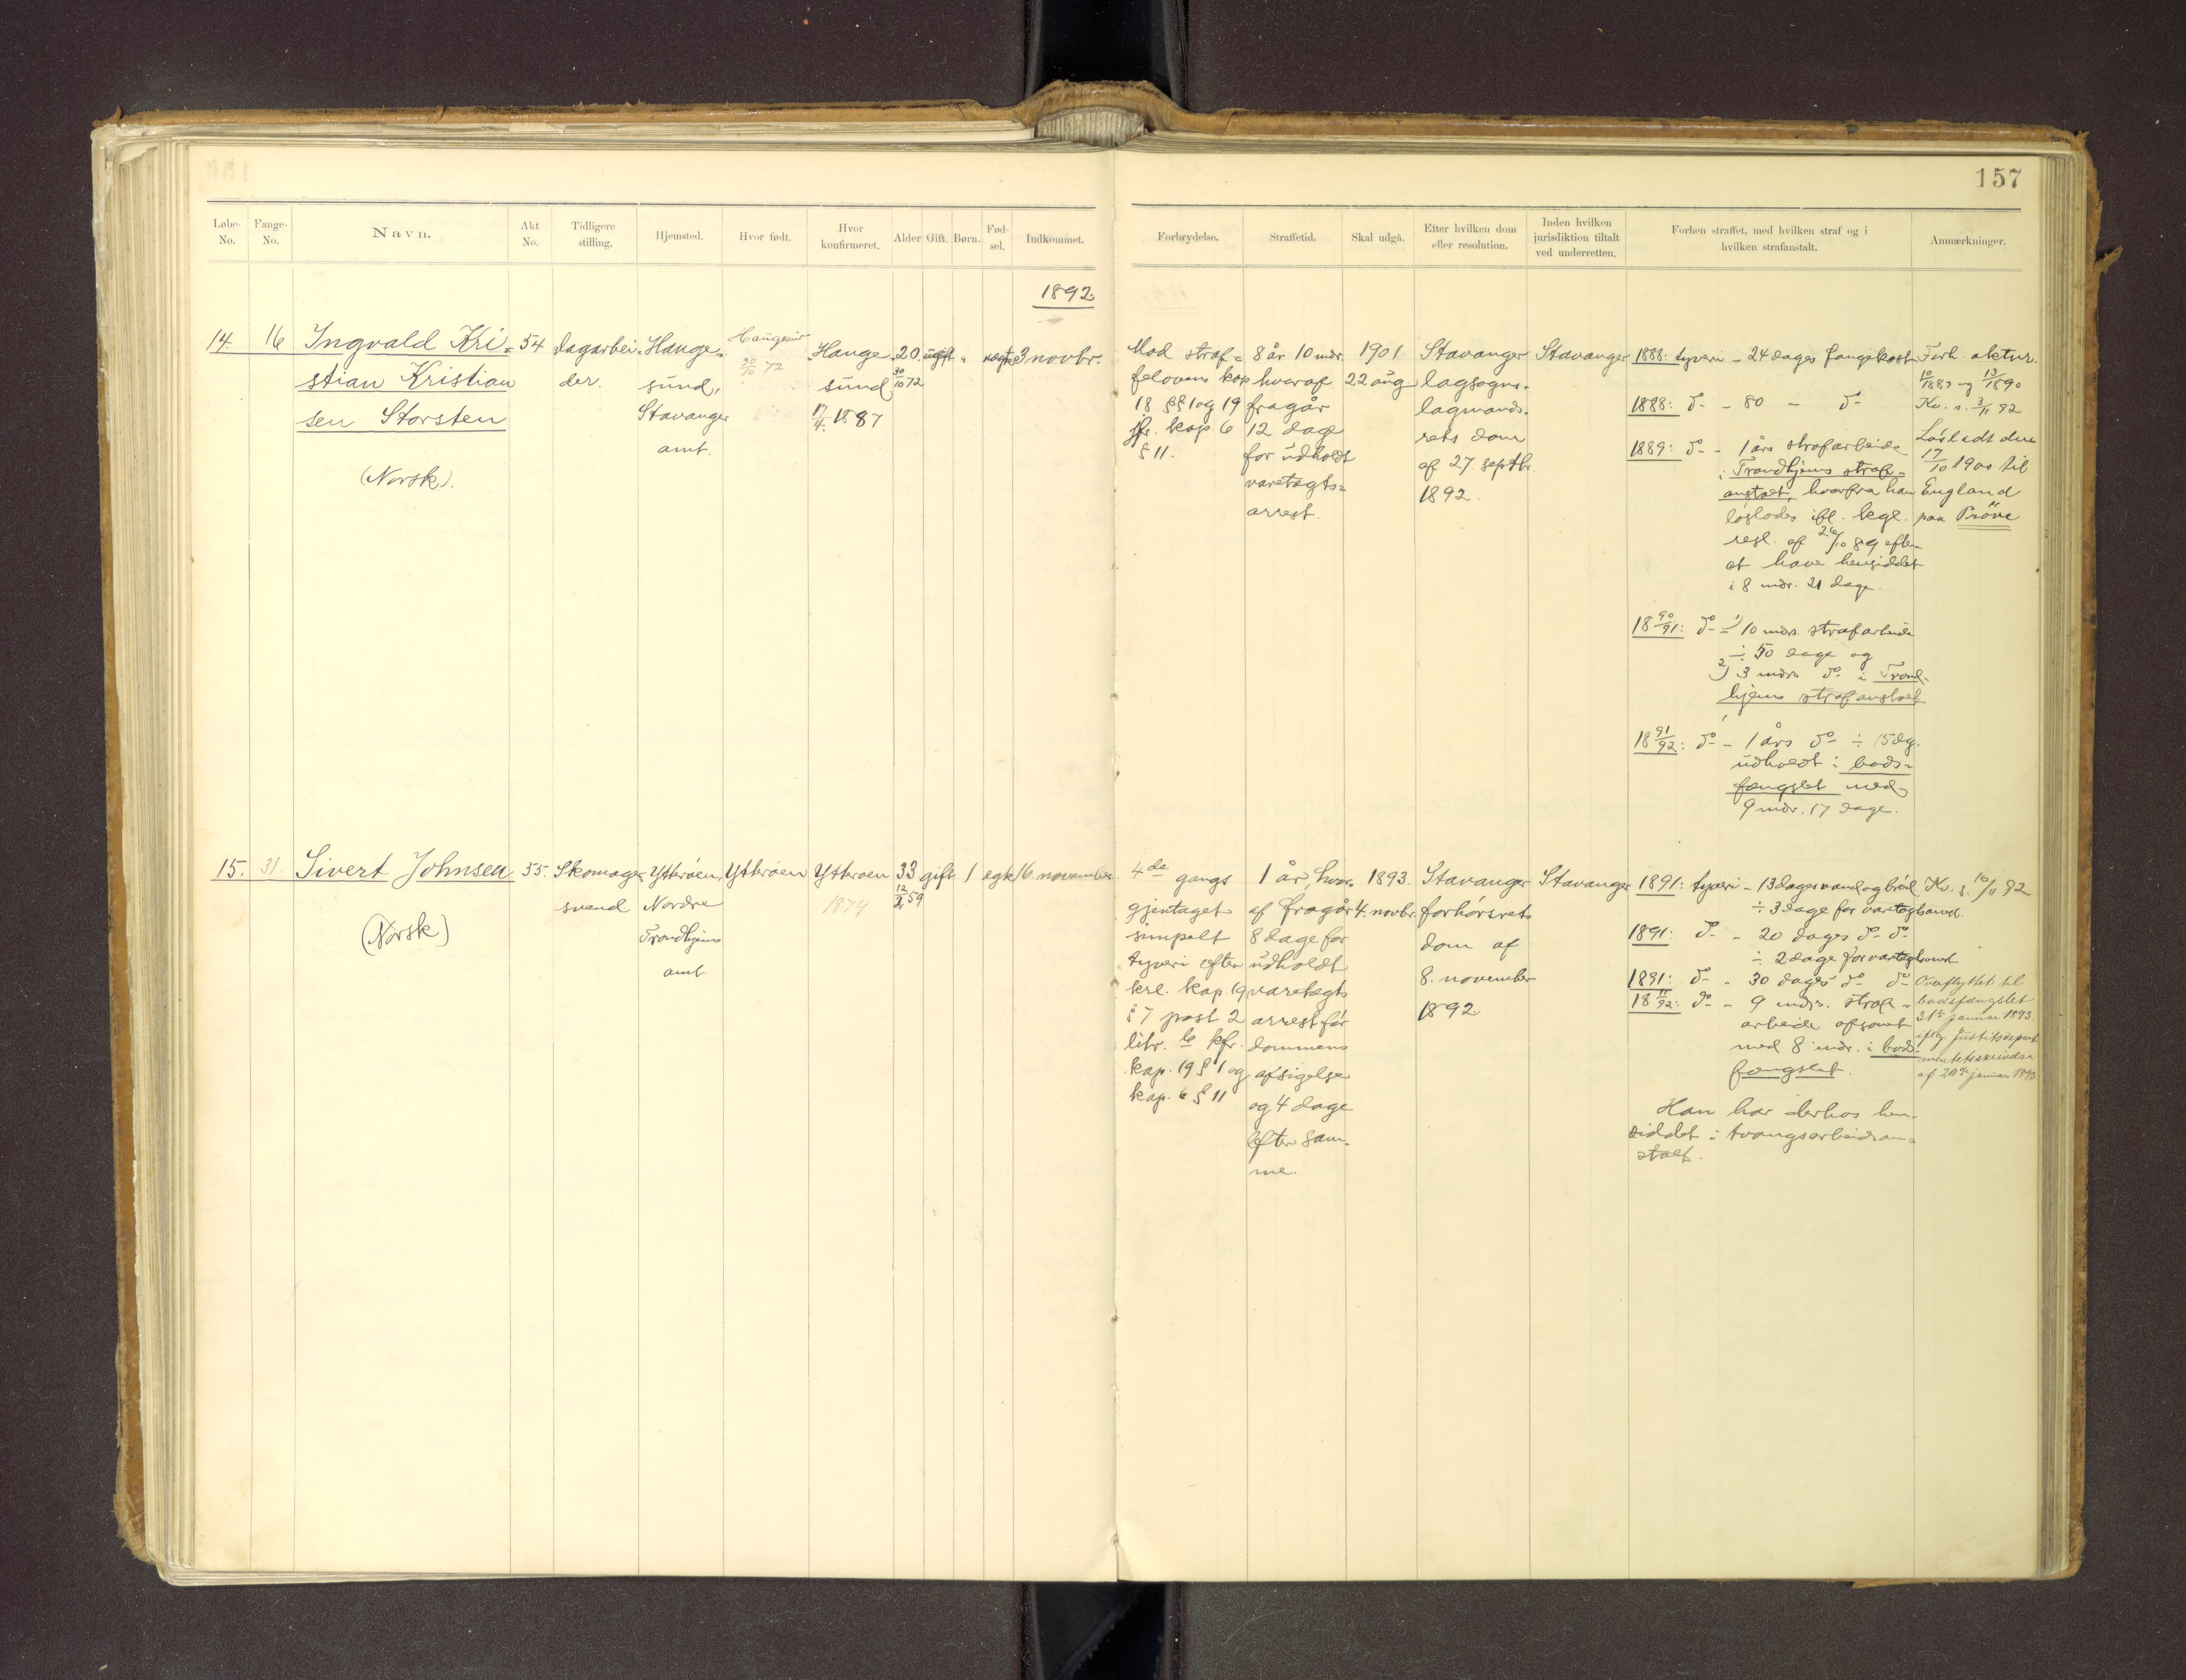 157
Løbe-No.
Fange-No.
Navn.
Akt No.
Tidligere stilling.
Hjemsted.
Hvor født.
Hvor konfirmeret.
Alder
Gift.
Børn.
Fød-sel.
Indkommet.
Forbrydelse.
Straffetid.
Skal udgå.
Efter hvilken dom eller resolution.
Inden hvilken jurisdiktion tiltalt ved underretten.
Forhen straffet, med hvilken straf og i hvilken strafanstalt.
Anmærkninger.
1892
14.
16
Ingvald Kri=
stian Kristian
sen Storsten
(Norsk).
54
dagarbei=
der.
Hauge=
sund,
Stavanger
amt.
30/10 72
Hauge
sund
17/4. 1887
20.
30/10 72
ugift
"
ægte
3 novbr.
Mod straf=
felovens kap
18 §§ 1 og 19
jfr. kap. 6
§ 11.
8 år 10 mdr.
hvoraf
fragår
12 dage
for udholdt
varetægts=
arrest.
1901
22 aug.
Stavanger
lagsogns-
lagmands-
rets dom
af 27. septbr.
1892.
Stavanger
1888: tyveri - 24 dages fangekost
1888: do - 80 - do
1889: do - 1 års strafarbeide
i Trondhjems straf=
anstalt, hvorfra han
løslodes ifl. kgl.
resl. af 26/10 89 efter
at have hensiddet
i 8 mdr. 21 dage.
18 90/91: do - 1) 10 mdrs. strafarbeide
÷ 50 dage og
2) 3 mdrs do i Trond-
hjems strafanstalt
18 91/92: do - 1 års do ÷ 15 dg.
udholdt i bods=
fængslet med
9 mdr. 17 dage.
Forh. aktur.
10/1889 og 13/1890
Kv. s. 3/11 92
Løsladt den
17/10 1900 til
England
paa Prøve
15.
31.
Sivert Johnsen
(Norsk)
55.
Skomager
svend
Ytterøen,
Nordre
Trondhjems
amt
Ytterøen
Ytterøen
1874
33
12/2 59
gift
1
egte
16 november
4de gangs
gjentaget
simpelt
tyveri efter
krl. kap. 19
§ 7 post 2
litr. b kfr.
kap. 19 § 1 og
kap. 6 § 11
1 år, hvor-
af fragår
8 dage for
udholdt
varetægts
arrest før
dommens
afsigelse
og 4 dage
efter sam-
me.
1893.
4. novbr.
Stavanger
forhørsrets
dom af
8. november
1892
Stavanger
1891: tyveri - 13 dages vand og brød
÷ 3 dage for varetægtsarrest.
1891: do - 20 dages do do
÷ 2 dage for varetægtsarrest
1891: do - 30 dages do do
18 91/92: do - 9 mdrs. straf-
arbeide afsonet
med 8 mdr. i bods-
fængslet.
Han har derhos hen-
siddet i tvangsarbeidsan-
stalt.
Kv. s. 16/11 92
Overflyttet til
bodsfængslet
31te januar 1893
ifølge Justitsdepart
mentets skrivelse
af 20de januar 1893.